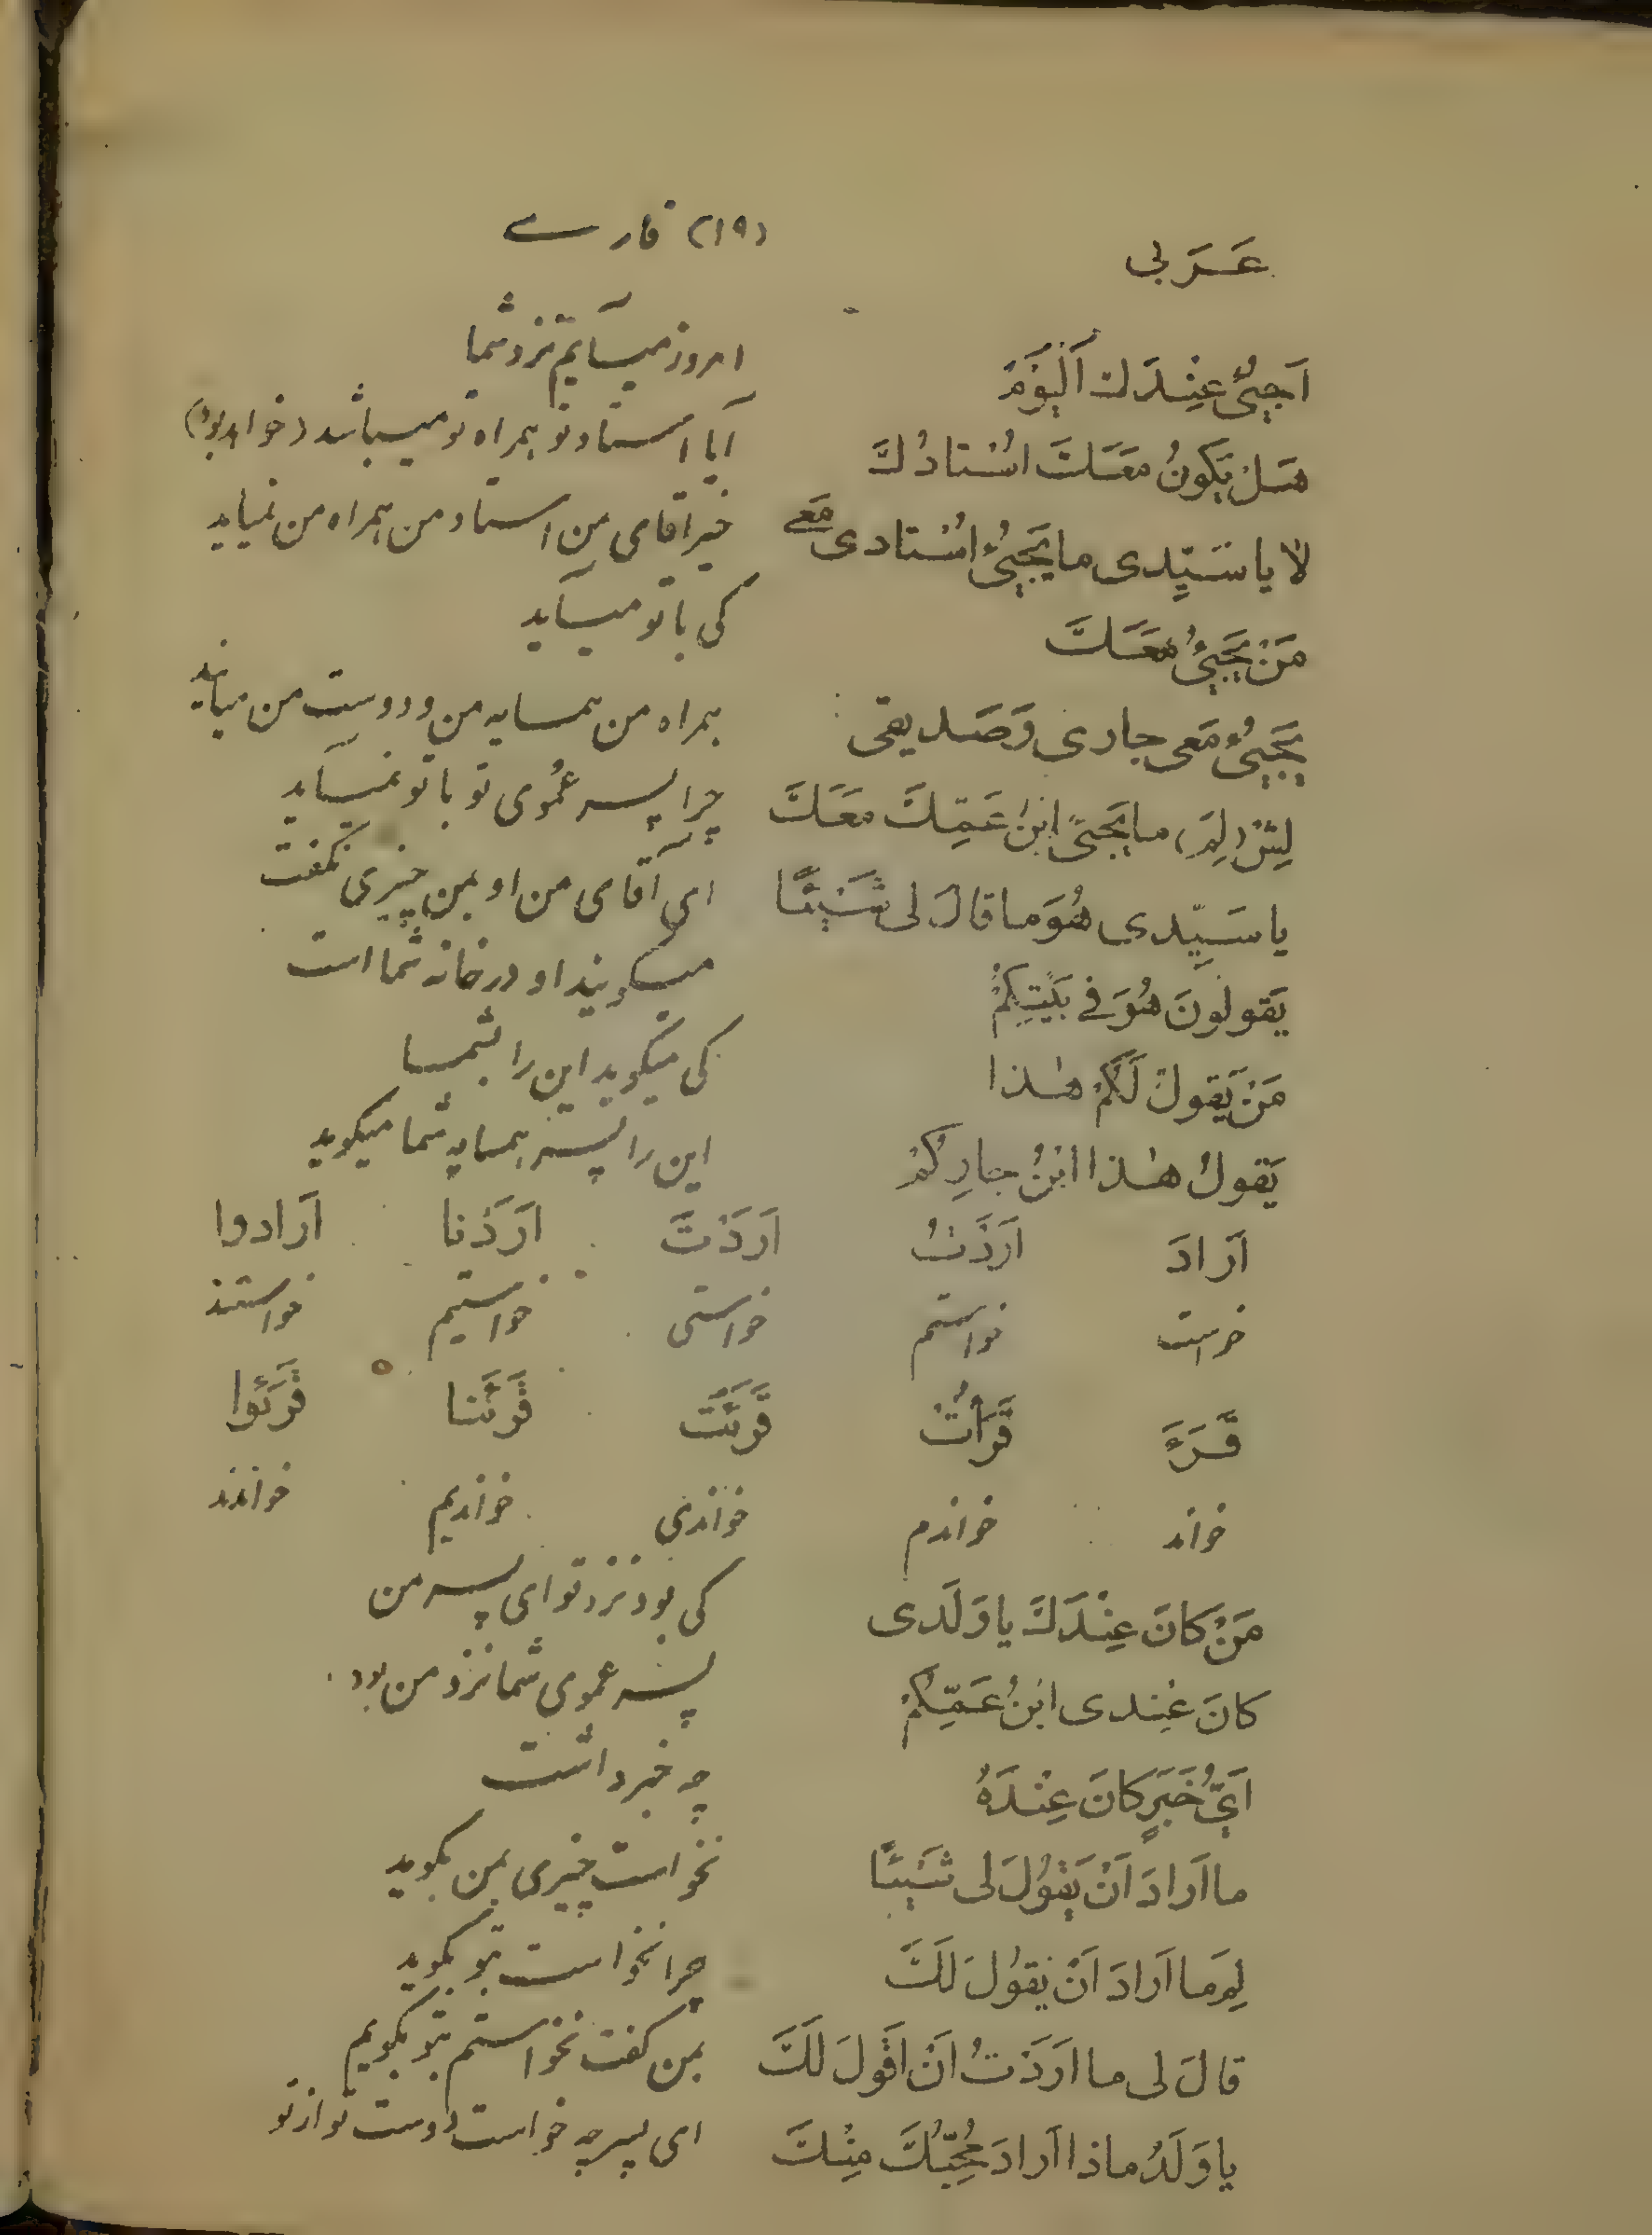 عَرَبی (۱۹) فارسے
اَجیئُ عِنْدَكَ اَلْیَوْمَ امروز میآیم نزد شما
هَلْ یَکونُ مَعَكَ اُسْتادُكَ آیا استاد تو همراه تو میباشد (خواهد بود)
لا یا سَیِّدی ما یَجیئُ اُسْتادی مَعے خیر اقای من استاد من همراه من نمیاید
مَنْ یَجیئُ مَعَكَ کی با تو میآید
یَجیئُ مَعی جاری وَصَدیقی همراه من همسایه من و دوست من میایند
لِیْش (لِمَ) ما یَجیئُ ابْنُ عَمِّكَ مَعَكَ چرا پسر عُموی تو با تو نمیآید
یا سَیِّدی هُوَ ما قالَ لی شَیْئًا ای آقای من او بمن چیزی نگفت
یَقولونَ هُوَ فے بَیْتِکُمْ میگویند او در خانه شما است
مَنْ یَقولُ لَکُمْ هٰذا کی میگوید این را بشما
یَقولُ هٰذا ابْنُ جارِکُمْ این را پسر همسایه شما میگوید
اَرادَ اَرَدْتُ اَرَدْتَ اَرَدْنا اَرادوا
خواست خواستم خواستی خواستیم خواستند
قَرَءَ قَرَأْتُ قَرَئْتَ قَرَئْنا قَرَئوا
خواند خواندم خواندی خواندیم خواندند
مَنْ کانَ عِنْدَكَ یا وَلَدی کی بود نزد تو ای پسر من
کانَ عِندی ابْنُ عَمِّکُمْ پسر عموی شما نزد من بود
اَیُّ خَبَرٍ کانَ عِنْدَهُ چه خبر داشت
ما اَرادَ اَنْ یَقُولَ لی شَیْئًا نخواست چیزی بمن بگوید
لِمَ ما اَرادَ اَنْ یَقُولَ لَكَ چرا نخواست بتو بگوید
قالَ لی ما اَرَدْتُ اَنْ اَقُولَ لَكَ بمن گفت نخواستم بتو بگویم
یا وَلَدُ ماذا اَرادَ مُحِبُّكَ مِنْكَ ای پسر چه خواست دوست تو از تو